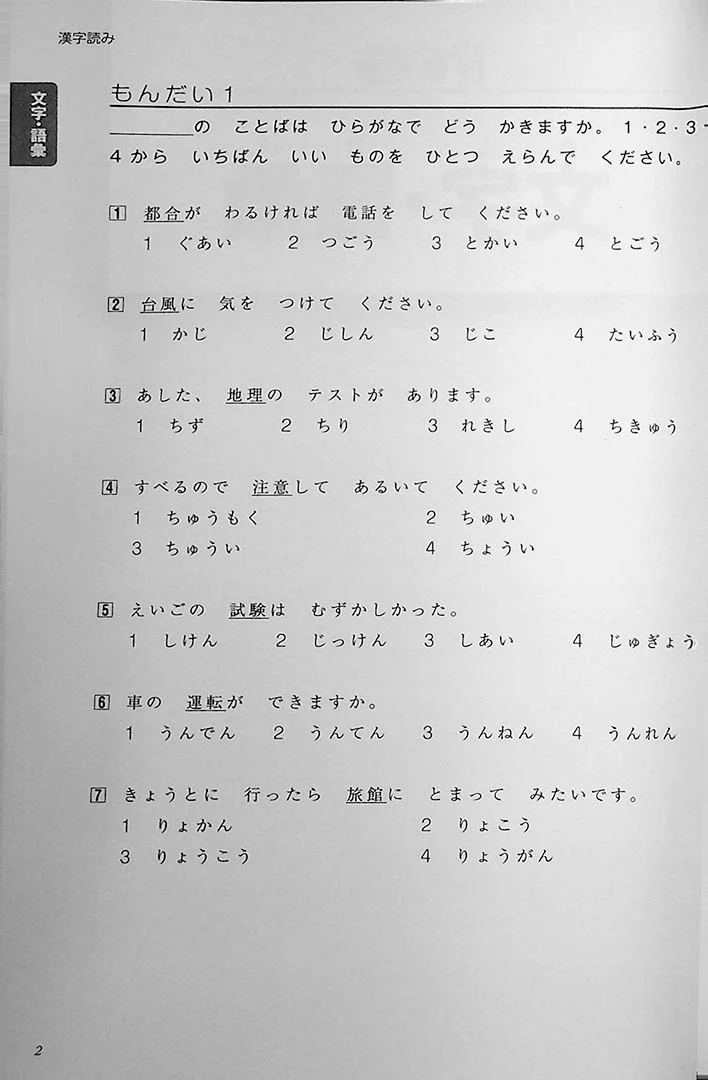 漢字読み
文字・語彙
もんだい1
________の ことばは ひらがなで どう かきますか。1・2・3・
4から いちばん いい ものを ひとつ えらんで ください。
1 都合が わるければ 電話を して ください。
1 ぐあい 2 つごう 3 とかい 4 とごう
2 台風に 気を つけて ください。
1 かじ 2 じしん 3 じこ 4 たいふう
3 あした、 地理の テストが あります。
1 ちず 2 ちり 3 れきし 4 ちきゅう
4 すべるので 注意して あるいて ください。
1 ちゅうもく 2 ちゅい
3 ちゅうい 4 ちょうい
5 えいごの 試験は むずかしかった。
1 しけん 2 じっけん 3 しあい 4 じゅぎょう
6 車の 運転が できますか。
1 うんでん 2 うんてん 3 うんねん 4 うんれん
7 きょうとに 行ったら 旅館に とまって みたいです。
1 りょかん 2 りょこう
3 りょうこう 4 りょうがん
2